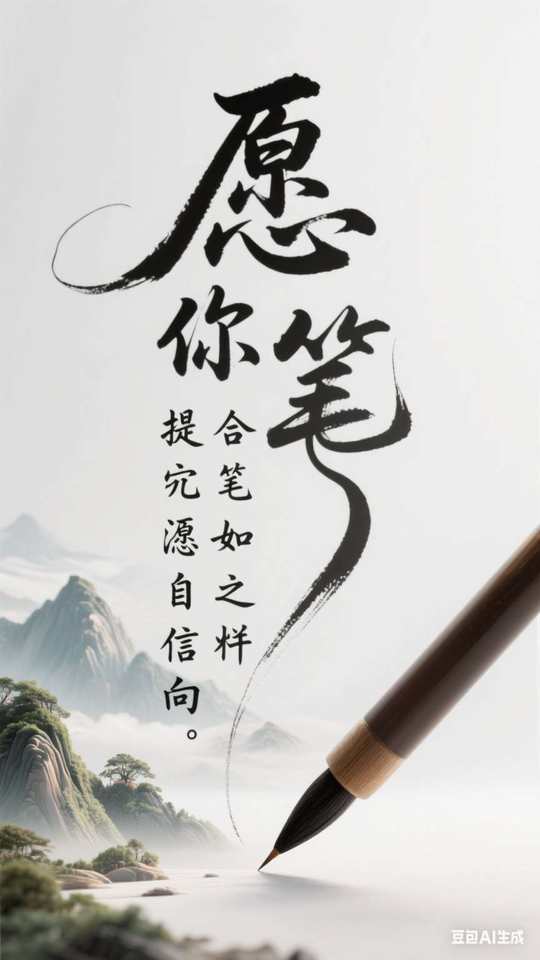 愿
你笔
合笔如之
提自信向。
豆包AI生成